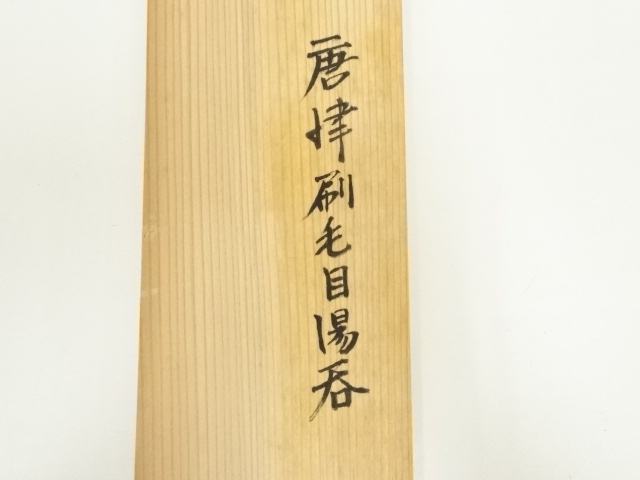 唐津刷毛目湯呑